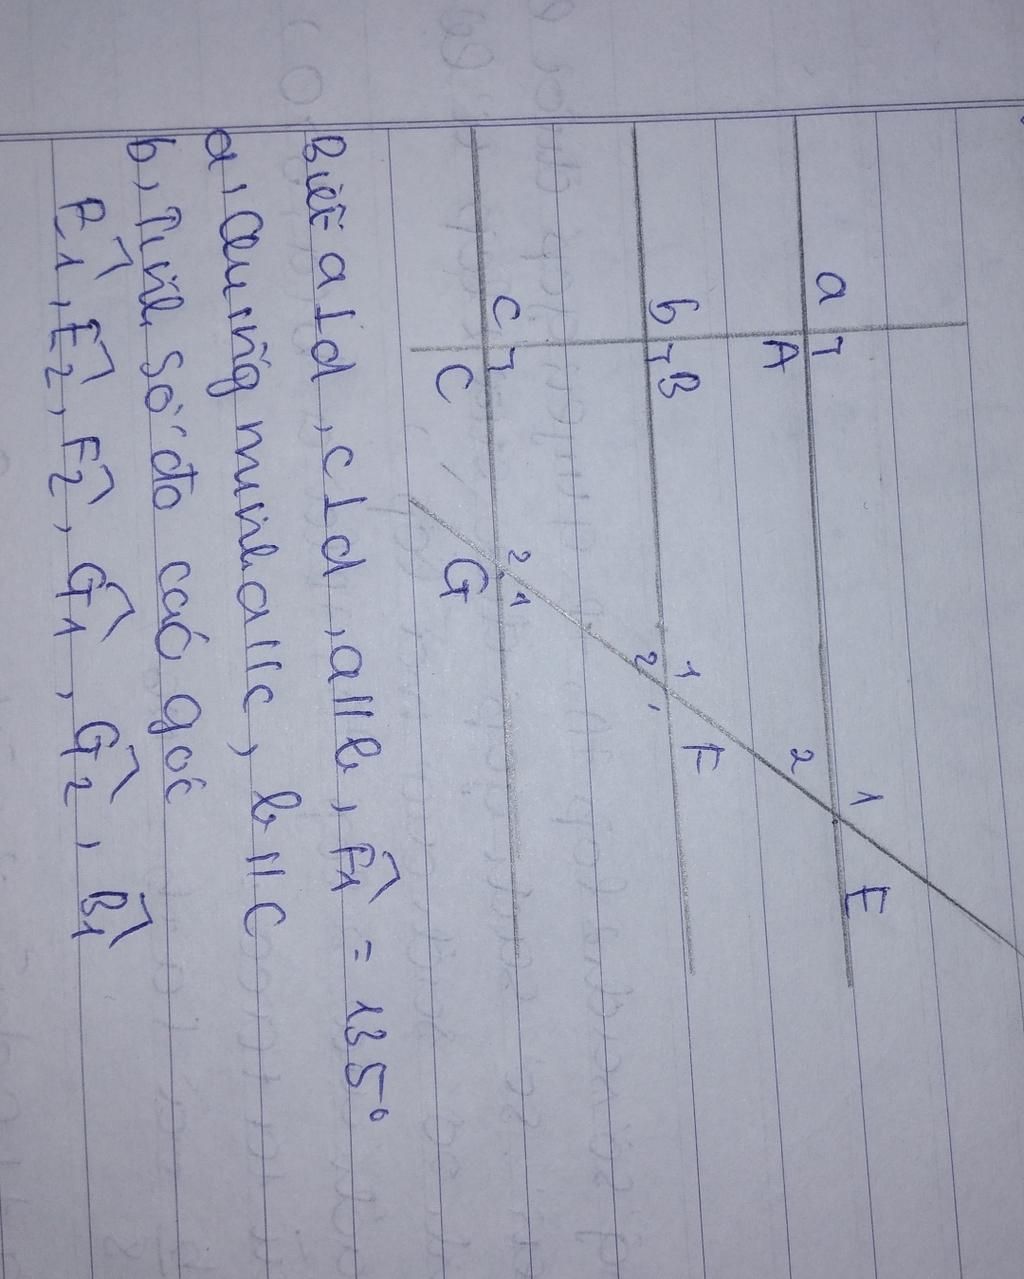 a
A
1
E
2
b
B
1
F
2
c
C
2
1
G
Biết a⊥d, c⊥d, a//b, F̂1 = 135°
a, Chứng minh a//c, b//c
b, Tính số đo các góc
Ê1, Ê2, F̂2, Ĝ1, Ĝ2, B̂1